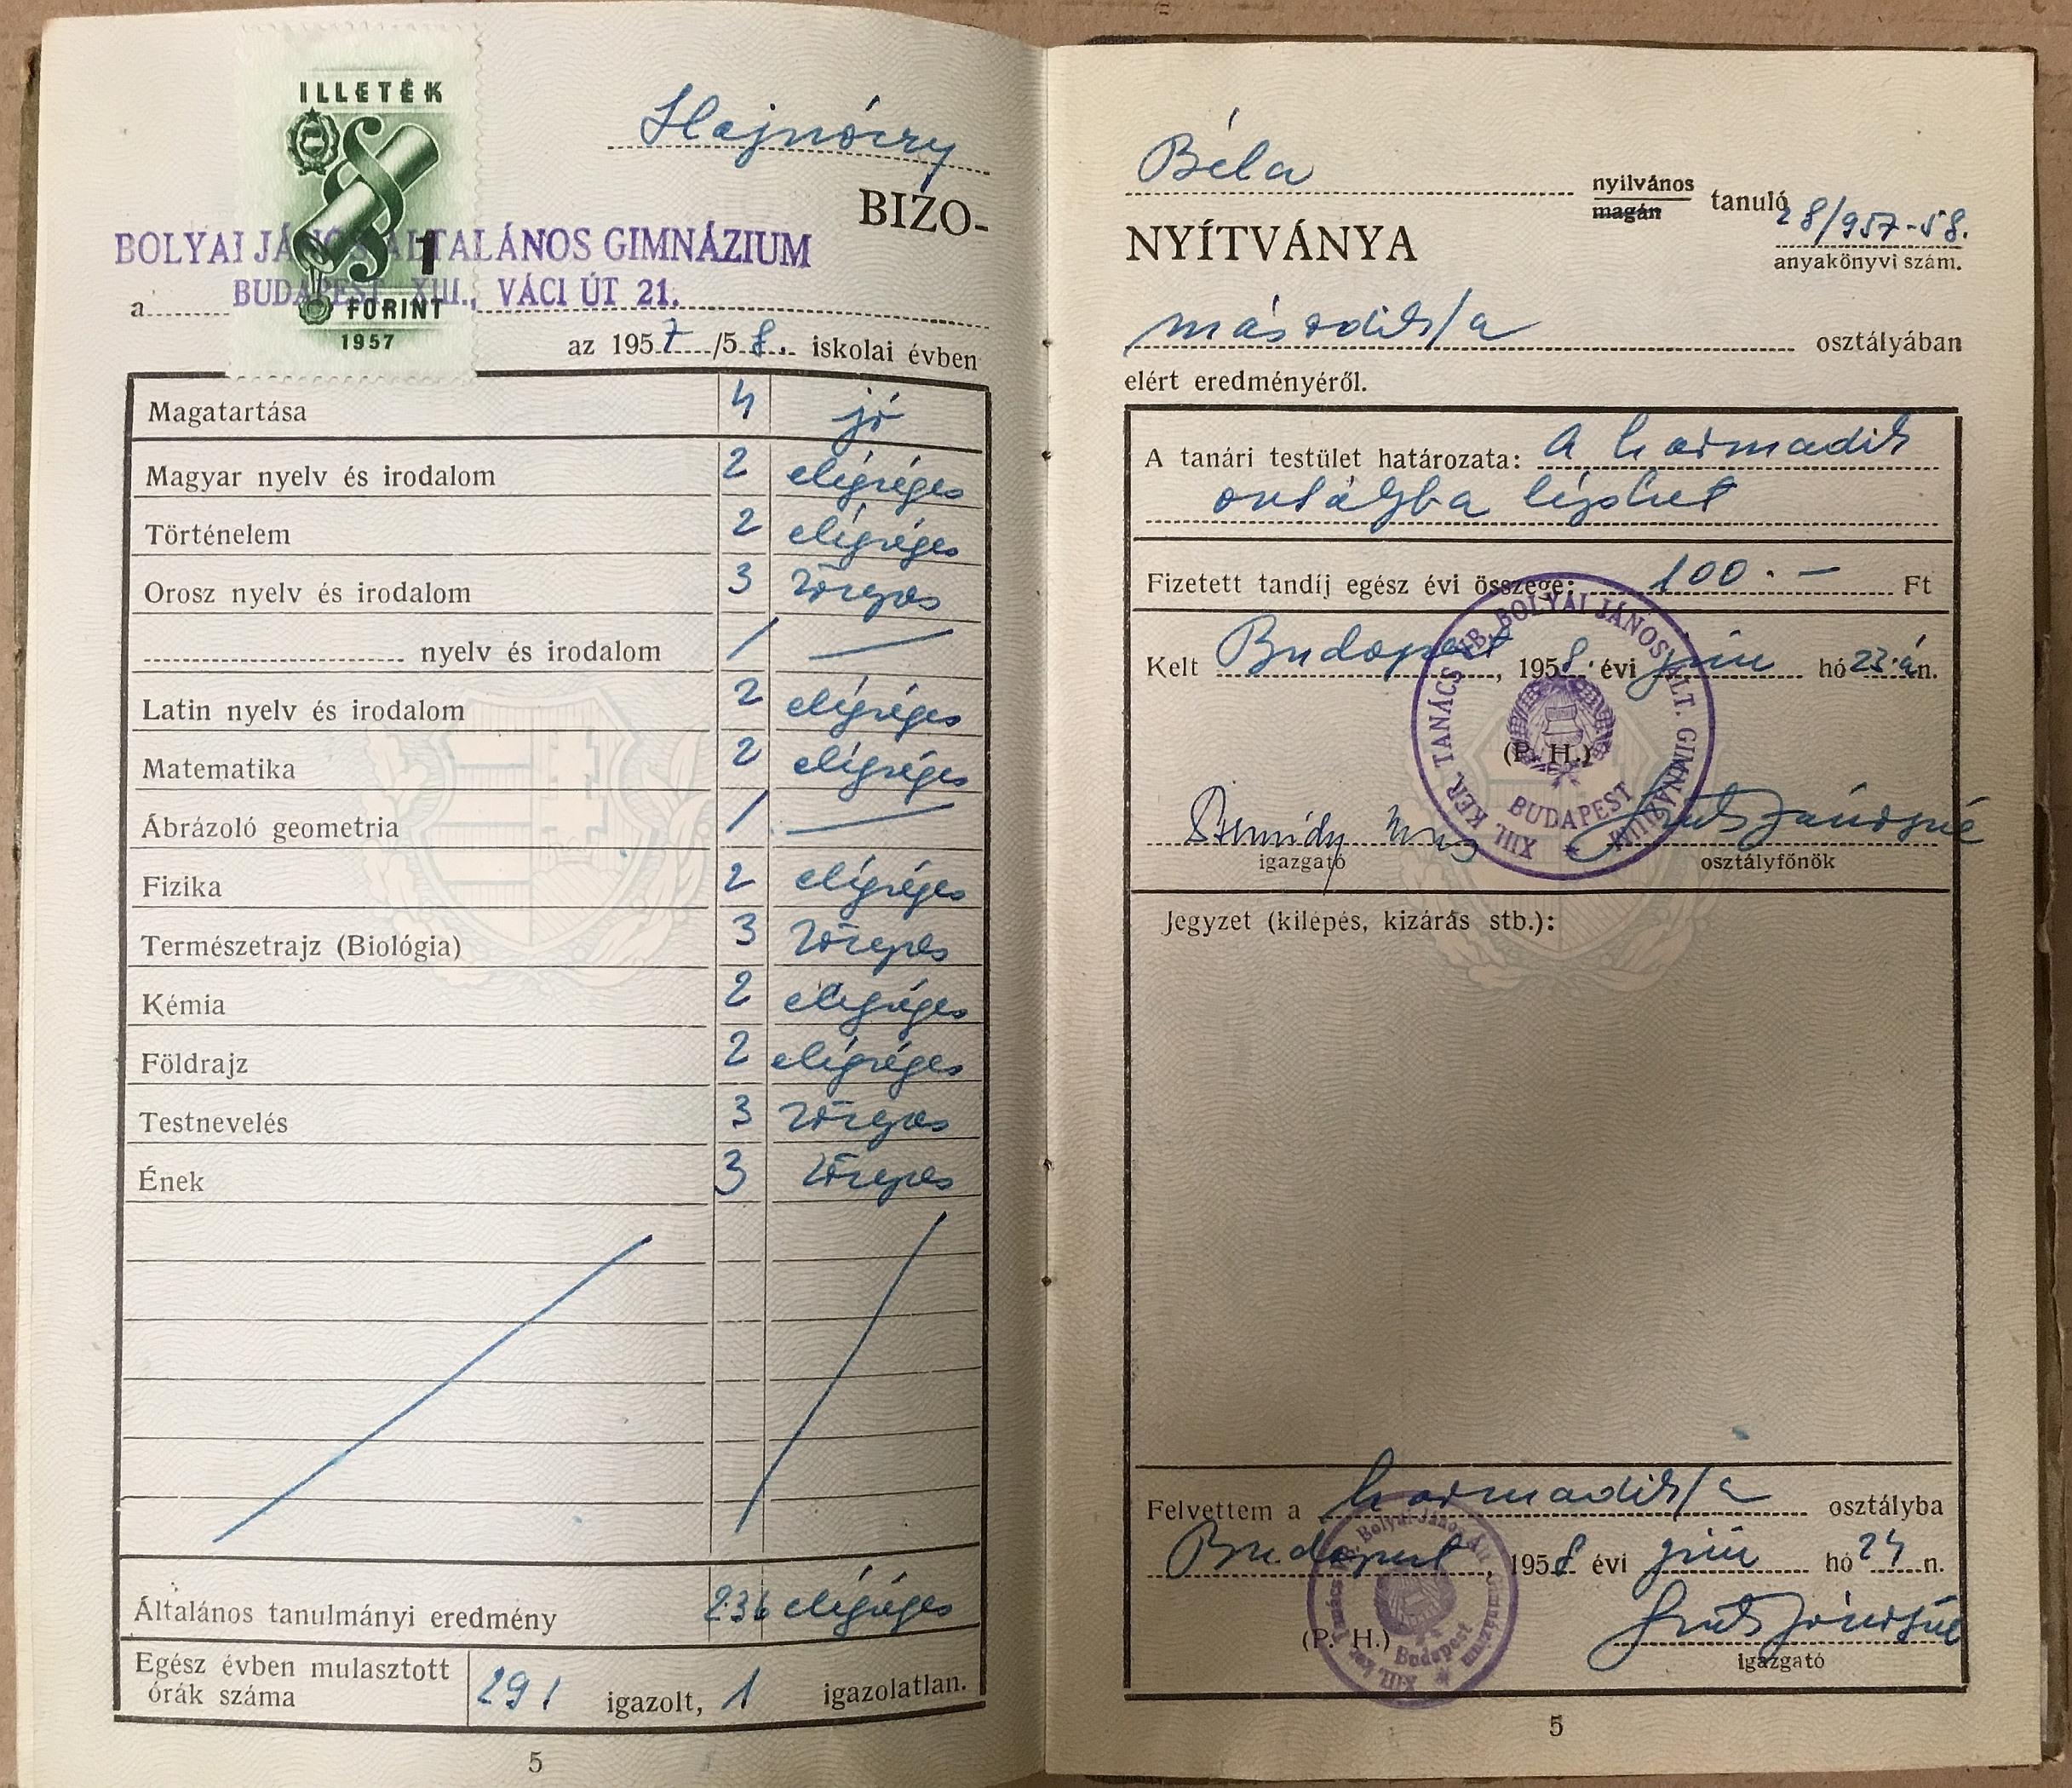 ILLETÉK
1
FORINT
1957
Hajnóczy
BIZO-
BOLYAI JÁNOS ÁLTALÁNOS GIMNÁZIUM
BUDAPEST, XIII., VÁCI ÚT 21.
a
az 1957/58. iskolai évben
Magatartása 4 jó
Magyar nyelv és irodalom 2 elégséges
Történelem 2 elégséges
Orosz nyelv és irodalom 3 közepes
nyelv és irodalom / —
Latin nyelv és irodalom 2 elégséges
Matematika 2 elégséges
Ábrázoló geometria / —
Fizika 2 elégséges
Természetrajz (Biológia) 3 közepes
Kémia 2 elégséges
Földrajz 2 elégséges
Testnevelés 3 közepes
Ének 3 közepes
Általános tanulmányi eredmény 2.36 elégséges
Egész évben mulasztott
órák száma 291 igazolt, 1 igazolatlan.
5
Béla nyilvános magán tanuló
28/957-58.
NYÍTVÁNYA
anyakönyvi szám.
második/a osztályában
elért eredményéről.
A tanári testület határozata: A harmadik
osztályba léphet
Fizetett tandíj egész évi összege: 100.- Ft
Kelt Budapest, 1958. évi jún hó 23.án.
(P. H.)
XIII. KER. TANÁCS VB. BOLYAI JÁNOS ÁLT. GIMNÁZIUM
BUDAPEST
igazgató
osztályfőnök
Jegyzet (kilépés, kizárás stb.):
Felvettem a harmadik/a osztályba
Budapest, 1958 évi jún hó 24 n.
(P. H.)
XIII. ker. Tanács VB. Bolyai János Ált. Gimnázium
Budapest
igazgató
5